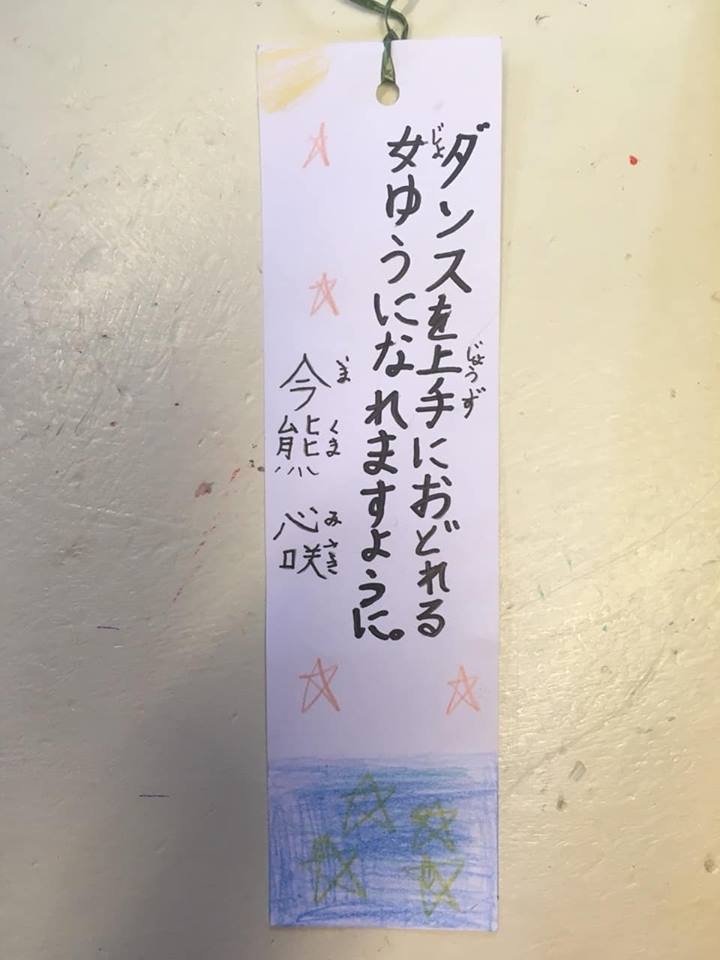 ダンスを上手におどれる
じょうず
女ゆうになれますように。
じょ
今熊 心咲
いま くま みさき